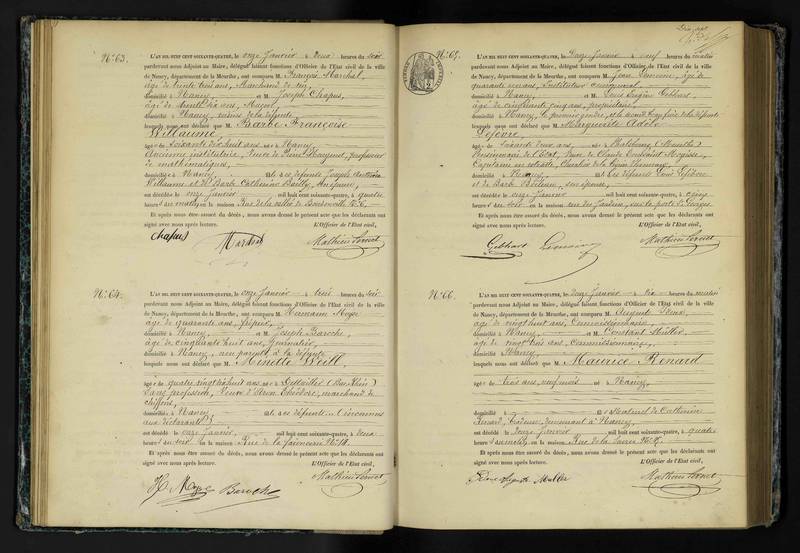 N.° 63.
L'AN MIL HUIT CENT SOIXANTE-QUATRE, le onze Janvier à Deux heures du soir
pardevant nous Adjoint au Maire, délégué faisant fonctions d'Officier de l'Etat civil de la ville
de Nancy, département de la Meurthe, ont comparu M. François Marchal,
âgé de trente trois ans, Marchand de
domicilié à Nancy, et M. Joseph Chapus,
âgé de trente six ans, Maçon,
domicilié à Nancy, voisins de la défunte
lesquels nous ont déclaré que M. Barbe Françoise
Willaume,
âgée de soixante dix huit ans née à Nancy
Ancienne institutrice, Veuve de professeur
de mathématiques,
domiciliée à Nancy, fille des défunts Joseph Antoine
Willaume et Barbe Catherine Bailly, son épouse,
est décédée le onze Janvier mil huit cent soixante-quatre, à quatre
heures du matin en la maison Rue de la vallée de Boudonville N.° 6,
Et après nous être assuré du décès, nous avons dressé le présent acte que les déclarants ont
signé avec nous après lecture. L'Officier de l'Etat civil,
Chapus Marchal
N.° 64.
L'AN MIL HUIT CENT SOIXANTE-QUATRE, le onze Janvier à trois heures du soir
pardevant nous Adjoint au Maire, délégué faisant fonctions d'Officier de l'Etat civil de la ville
de Nancy, département de la Meurthe, ont comparu M. Hermann
âgé de quarante ans, fripier,
domicilié à Nancy, et M. Joseph Baroche,
âgé de cinquante huit ans, Journalier,
domicilié à Nancy, non parents à la défunte
lesquels nous ont déclaré que M. Minette Weill
âgée de quatre vingt dix huit ans née à (Bas Rhin)
Sans profession, Veuve d'Aron Théodore, marchand de
chiffons,
domiciliée à Nancy fille des défunts (inconnus
aux déclarants)
est décédée le onze Janvier, mil huit cent soixante-quatre, à deux
heures du soir en la maison Rue de la faïencerie N.° 18.
Et après nous être assuré du décès, nous avons dressé le présent acte que les déclarants ont
signé avec nous après lecture. L'Officier de l'Etat civil,
Baroche
N.° 65.
L'AN MIL HUIT CENT SOIXANTE-QUATRE, le Douze Janvier à neuf heures du matin
pardevant nous Adjoint au Maire, délégué faisant fonctions d'Officier de l'Etat civil de la ville
de Nancy, département de la Meurthe, ont comparu M. Jean Lemoine, âgé de
quarante neuf ans, Instituteur communal,
domicilié à Nancy, et M. Louis Eugène Gebhart
âgé de cinquante cinq ans, propriétaire,
domicilié à Nancy, le premier gendre, et le second beau frère de la défunte
lesquels nous ont déclaré que M. Marguerite Adèle
Lefèvre,
âgée de soixante deux ans, née à (Meurthe)
Pensionnaire de l'Etat, Veuve de Claude
Capitaine en retraite, Chevalier de la Légion d'honneur,
domiciliée à Nancy, fille des défunts Louis Lefèvre
et de Barbe son épouse,
est décédée le onze Janvier mil huit cent soixante-quatre, à cinq
heures du soir en la maison rue du faubourg
Et après nous être assuré du décès, nous avons dressé le présent acte que les déclarants ont
signé avec nous après lecture. L'Officier de l'Etat civil,
Gebhart Lemoine
N.° 66.
L'AN MIL HUIT CENT SOIXANTE-QUATRE, le Douze Janvier à dix heures du matin
pardevant nous Adjoint au Maire, délégué faisant fonctions d'Officier de l'Etat civil de la ville
de Nancy, département de la Meurthe, ont comparu M. August
âgé de vingt huit ans, Commissionnaire,
domicilié à Nancy, et M. Constant Muller
âgé de vingt trois ans, commissionnaire,
domicilié à Nancy,
lesquels nous ont déclaré que M. Maurice Renard
âgé de trois ans, neuf mois né à Nancy,
domicilié fils naturel de Catherine
Renard, brodeuse, demeurant à Nancy,
est décédé le Douze Janvier mil huit cent soixante-quatre, à quatre
heures du matin en la maison Rue de la
Et après nous être assuré du décès, nous avons dressé le présent acte que les déclarants ont
signé avec nous après lecture. L'Officier de l'Etat civil,
Muller